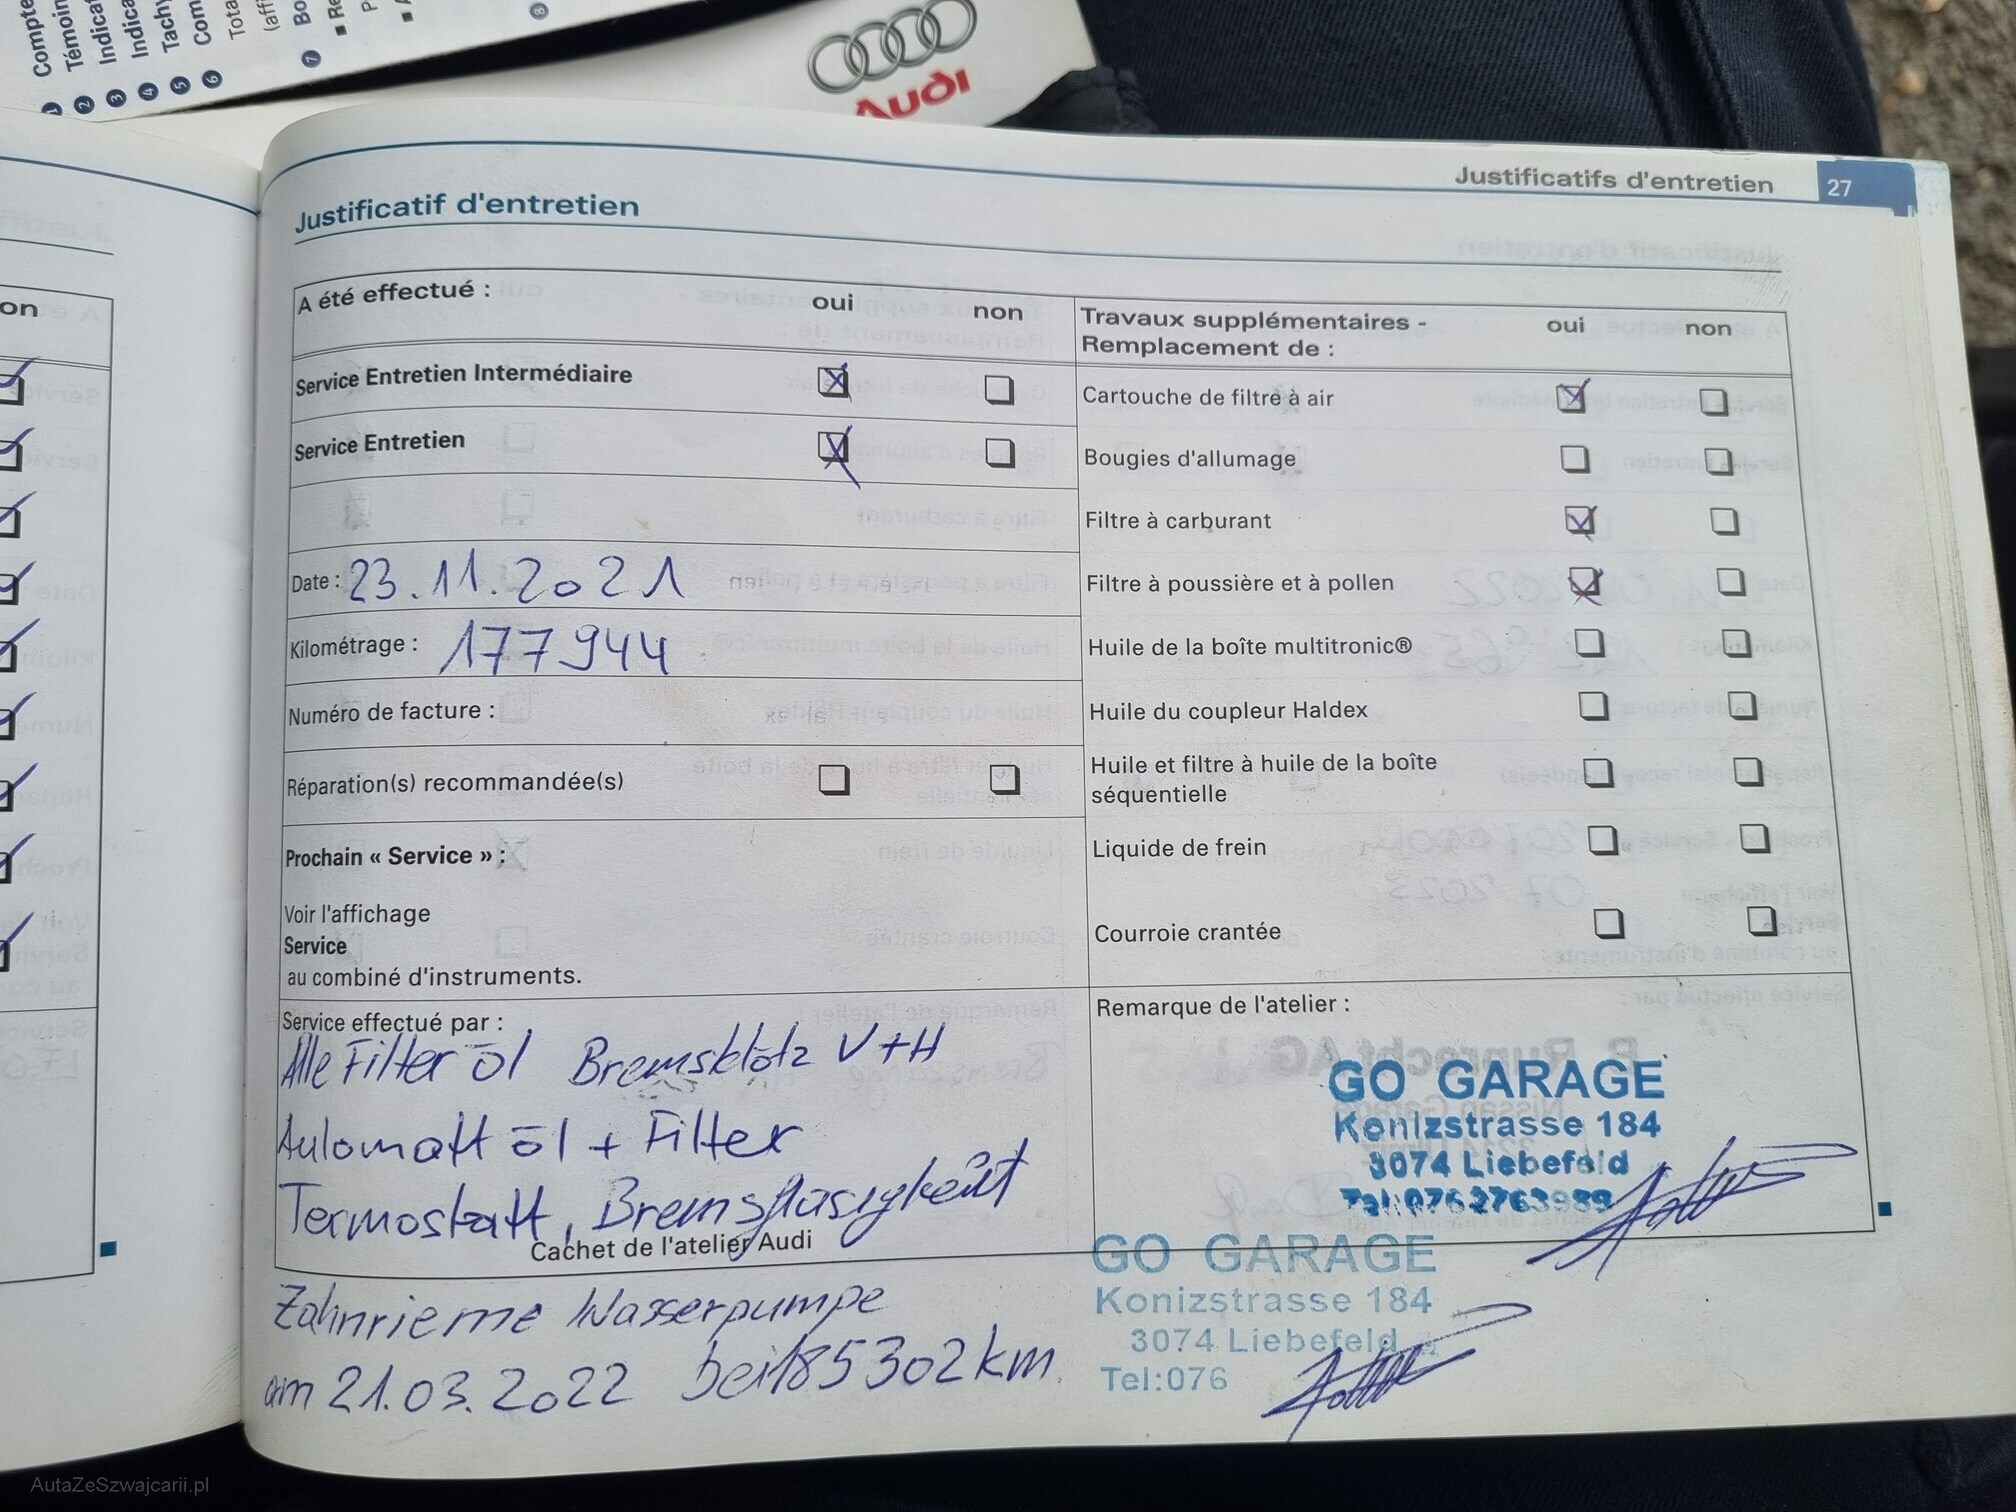 Audi
Justificatifs d'entretien 27
Justificatif d'entretien
on
A été effectué : oui non
Service Entretien Intermédiaire
Service Entretien
Date : 23.11.2021
Kilométrage : 177944
Numéro de facture :
Réparation(s) recommandée(s)
Prochain « Service » :
Voir l'affichage
Service
au combiné d'instruments.
Service effectué par :
Alle Filter öl Bremsklötz V+H
Automatt öl + Filter
Termostatt, Bremsflasigkeit
Cachet de l'atelier Audi
Zahnrieme Wasserpumpe
am 21.03.2022 bei 185302 km
Travaux supplémentaires -
Remplacement de : oui non
Cartouche de filtre à air
Bougies d'allumage
Filtre à carburant
Filtre à poussière et à pollen
Huile de la boîte multitronic®
Huile du coupleur Haldex
Huile et filtre à huile de la boîte
séquentielle
Liquide de frein
Courroie crantée
Remarque de l'atelier :
GO GARAGE
Konizstrasse 184
3074 Liebefeld
Tel:076 2763989
GO GARAGE
Konizstrasse 184
3074 Liebefeld
Tel:076
AutaZeSzwajcarii.pl